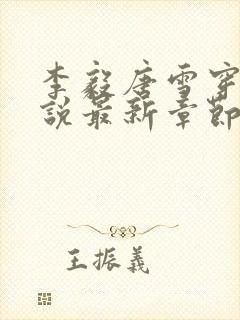 李毅唐雪穿
說最新章節
王振義